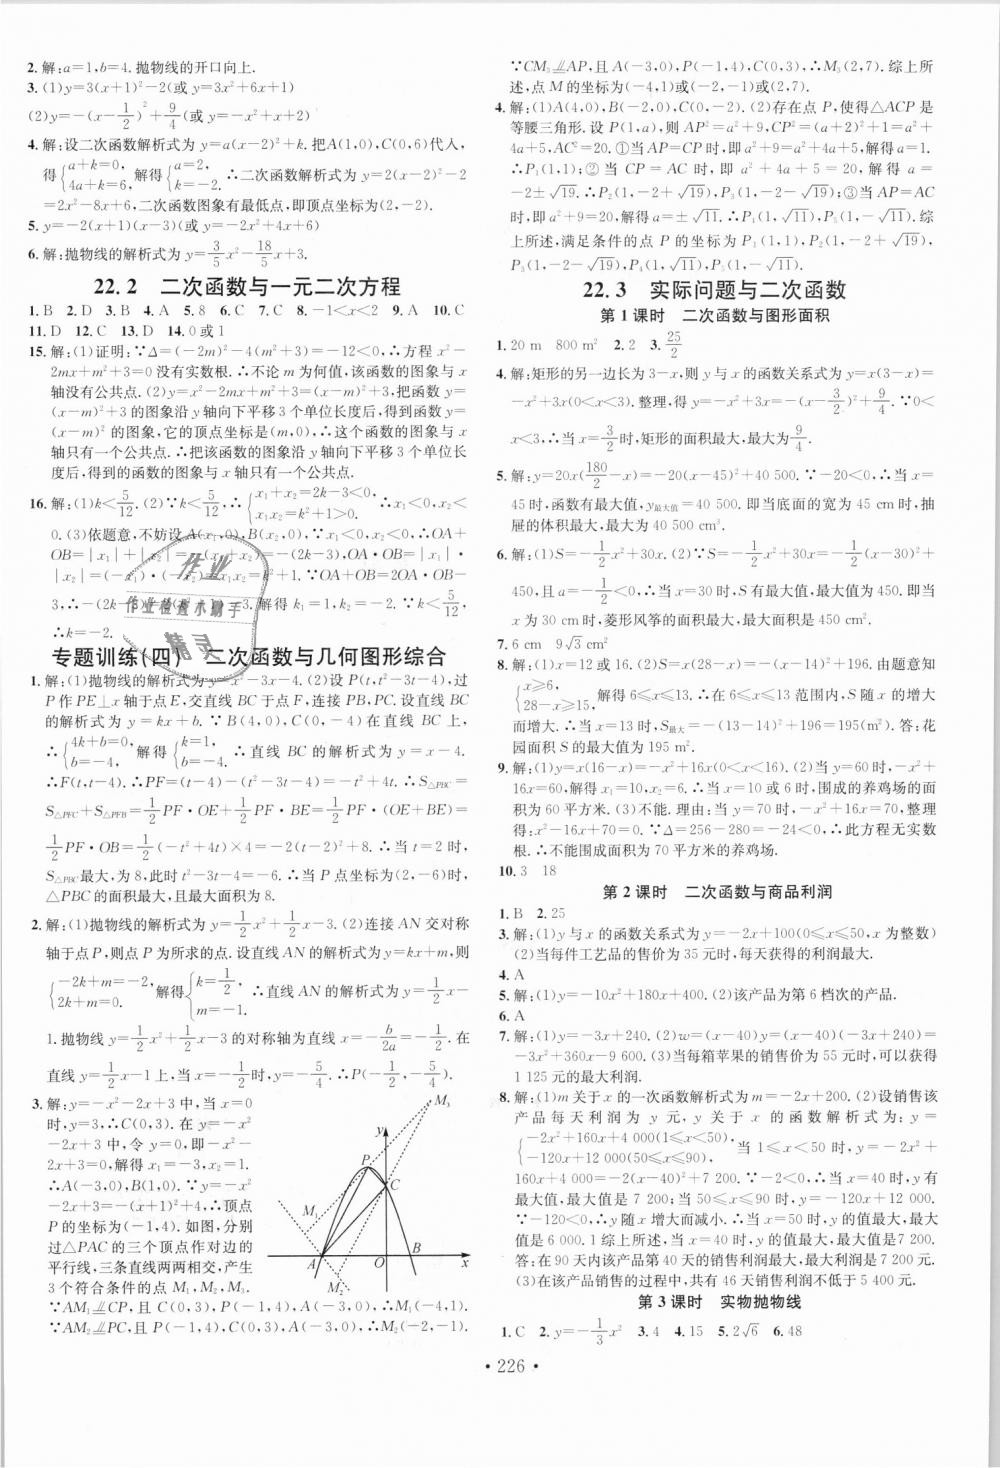 2. 解:a=1,b=4. 抛物线的开口向上.
3. (1)y=3(x+1)²-2(或 y=3x²+6x+1)
(2)y=-(x-1/2)²+9/4(或 y=-x²+x+2)
4. 解:设二次函数解析式为 y=a(x-2)²+k. 把A(1,0),C(0,6)代人,
得{a+k=0, 4a+k=6, 解得{a=2, k=-2. ∴二次函数解析式为 y=2(x-2)²-2
=2x²-8x+6,二次函数图象有最低点,即顶点坐标为(2,-2).
5. y=-2(x+1)(x-3)(或 y=-2x²+4x+6)
6. 解:抛物线的解析式为 y=3/5x²-18/5x+3.
22.2 二次函数与一元二次方程
1. B 2. D 3. B 4. A 5. 8 6. C 7. C 8. -1<x<2 9. A 10. C
11. D 12. C 13. D 14. 0 或 1
15. 解:(1)证明:∵Δ=(-2m)²-4(m²+3)=-12<0,∴方程 x²-
2mx+m²+3=0 没有实数根. ∴不论 m 为何值,该函数的图象与 x
轴没有公共点. (2)y=x²-2mx+m²+3=(x-m)²+3,把函数 y=
(x-m)²+3 的图象沿 y 轴向下平移 3 个单位长度后,得到函数 y=
(x-m)² 的图象,它的顶点坐标是(m,0),∴这个函数的图象与 x
轴只有一个公共点. ∴把该函数的图象沿 y 轴向下平移 3 个单位长
度后,得到的函数的图象与 x 轴只有一个公共点.
16. 解:(1)k<5/12. (2)∵k<5/12,∴{x₁+x₂=2k-3<0, x₁x₂=k²+1>0. ∴x₁<0,x₂<
0. (3)依题意,不妨设 A(x₁,0),B(x₂,0),∵x₁<0,x₂<0,∴OA+
OB=|x₁|+|x₂|=-(x₁+x₂)=-(2k-3),OA·OB=|x₁|·
|x₂|=x₁x₂=k²+1. ∵OA+OB=2OA·OB-
3,∴-(2k-3)=2(k²+1)-3,解得 k₁=1,k₂=-2. ∵k<5/12,
∴k=-2.
专题训练(四) 二次函数与几何图形综合
1. 解:(1)抛物线的解析式为 y=x²-3x-4. (2)设 P(t,t²-3t-4),过
P 作 PE⊥x 轴于点 E,交直线 BC 于点 F,连接 PB,PC. 设直线 BC
的解析式为 y=kx+b. ∵B(4,0),C(0,-4)在直线 BC 上,
∴{4k+b=0, b=-4, 解得{k=1, b=-4. ∴直线 BC 的解析式为 y=x-4.
∴F(t,t-4). ∴PF=(t-4)-(t²-3t-4)=-t²+4t. ∴S△PBC=
S△PFC+S△PFB=1/2PF·OE+1/2PF·BE=1/2PF·(OE+BE)=
1/2PF·OB=1/2(-t²+4t)×4=-2(t-2)²+8. ∴当 t=2时,
S△PBC最大,为 8,此时 t²-3t-4=-6. ∴当点 P 坐标为(2,-6)时,
△PBC 的面积最大,且最大面积为 8.
2. 解:(1)抛物线的解析式为 y=1/2x²+1/2x-3. (2)连接 AN 交对称
轴于点 P,则点 P 为所求的点. 设直线 AN 的解析式为 y=kx+m,则
{-2k+m=-2, 2k+m=0. 解得{k=1/2, m=-1. ∴直线 AN 的解析式为 y=1/2x-
1. 抛物线 y=1/2x²+1/2x-3 的对称轴为直线 x=-b/2a=-1/2. 在
直线 y=1/2x-1 上,当 x=-1/2时,y=-5/4. ∴P(-1/2,-5/4).
3. 解:y=-x²-2x+3 中,当 x=0
时,y=3,∴C(0,3). 在 y=-x²-
2x+3 中,令 y=0,即-x²-
2x+3=0,解得 x₁=-3,x₂=1.
∴A(-3,0),B(1,0). ∵y=-x²
-2x+3=-(x+1)²+4,∴顶点
P 的坐标为(-1,4). 如图,分别
过△PAC 的三个顶点作对边的
平行线,三条直线两两相交,产生
3 个符合条件的点 M₁,M₂,M₃.
∵AM₁⫽CP,且 C(0,3),P(-1,4),A(-3,0),∴M₁(-4,1).
∵AM₂⫽PC,且 P(-1,4),C(0,3),A(-3,0),∴M₂(-2,-1).
y
M₃
P
C
M₁
A
O
B
x
M₂
∵CM₃⫽AP,且 A(-3,0),P(-1,4),C(0,3),∴M₃(2,7). 综上所
述,点 M 的坐标为(-4,1)或(-2,-1)或(2,7).
4. 解:(1)A(4,0),B(-2,0),C(0,-2). (2)存在点 P,使得△ACP 是
等腰三角形. 设 P(1,a),则 AP²=a²+9,CP²=(a+2)²+1=a²+
4a+5,AC²=20. ①当 AP=CP 时,即 a²+9=a²+4a+5,解得 a=1.
∴P₁(1,1);②当 CP=AC 时,即 a²+4a+5=20,解得 a=
-2±√19. ∴P₂(1,-2+√19),P₃(1,-2-√19);③当 AP=AC
时,即 a²+9=20,解得 a=±√11. ∴P₄(1,√11),P₅(1,-√11). 综
上所述,满足条件的点 P 的坐标为 P₁(1,1),P₂(1,-2+√19),
P₃(1,-2-√19),P₄(1,√11),P₅(1,-√11).
22.3 实际问题与二次函数
第 1 课时 二次函数与图形面积
1. 20 m 800 m² 2. 2 3. 25/2
4. 解:矩形的另一边长为 3-x,则 y 与 x 的函数关系式为 y=x(3-x)=
-x²+3x(0<x<3). 整理,得 y=-x²+3x=-(x-3/2)²+9/4. ∵0<
x<3,∴当 x=3/2时,矩形的面积最大,最大为9/4.
5. 解:y=20x(180/2-x)=-20(x-45)²+40 500. ∵-20<0,∴当 x=
45 时,函数有最大值,y最大值=40 500. 即当底面的宽为 45 cm 时,抽
屉的体积最大,最大为 40 500 cm³.
6. 解:(1)S=-1/2x²+30x. (2)∵S=-1/2x²+30x=-1/2(x-30)²+
450,且 a=-1/2<0,∴当 x=30 时,S 有最大值,最大值为 450. 即当
x 为 30 cm 时,菱形风筝的面积最大,最大为 450 cm².
7. 6 cm 9√3 cm²
8. 解:(1)x=12 或 16. (2)S=x(28-x)=-(x-14)²+196. 由题意知
{x≥6, 28-x≥15, 解得 6≤x≤13. ∴在 6≤x≤13 范围内,S 随 x 的增大
而增大. ∴当 x=13 时,S最大=-(13-14)²+196=195(m²). 答:花
园面积 S 的最大值为 195 m².
9. 解:(1)y=x(16-x)=-x²+16x(0<x<16). (2)当 y=60 时,-x²+
16x=60,解得 x₁=10,x₂=6. ∴当 x=10 或 6 时,围成的养鸡场的面
积为 60 平方米. (3)不能. 理由:当 y=70 时,-x²+16x=70,整理
得:x²-16x+70=0. ∵Δ=256-280=-24<0,∴此方程无实数
根. ∴不能围成面积为 70 平方米的养鸡场.
10. 3 18
第 2 课时 二次函数与商品利润
1. B 2. 25
3. 解:(1)y 与 x 的函数关系式为 y=-2x+100(0≤x≤50,x 为整数)
(2)当每件工艺品的售价为 35 元时,每天获得的利润最大.
4. A
5. 解:(1)y=-10x²+180x+400. (2)该产品为第 6 档次的产品.
6. A
7. 解:(1)y=-3x+240. (2)w=(x-40)y=(x-40)(-3x+240)=
-3x²+360x-9 600. (3)当每箱苹果的销售价为 55 元时,可以获得
1 125 元的最大利润.
8. 解:(1)m 关于 x 的一次函数解析式为 m=-2x+200. (2)设销售该
产品每天利润为 y 元,y 关于 x 的函数解析式为:y=
{-2x²+160x+4 000(1≤x<50), -120x+12 000(50≤x≤90), 当 1≤x<50 时,y=-2x²+
160x+4 000=-2(x-40)²+7 200. ∵-2<0,∴当 x=40 时,y 有
最大值,最大值是 7 200;当 50≤x≤90 时,y=-120x+12 000.
∵-120<0,∴y 随 x 增大而减小. ∴当 x=50 时,y 的值最大,最大
值是 6 000. 1 综上所述,当 x=40 时,y 的值最大,最大值是 7 200.
答:在 90 天内该产品第 40 天的销售利润最大,最大利润是 7 200 元.
(3)在该产品销售的过程中,共有 46 天销售利润不低于 5 400 元.
第 3 课时 实物抛物线
1. C 2. y=-1/3x² 3. 4 4. 15 5. 2√6 6. 48
· 226 ·
作业
作业检查小助手
精灵